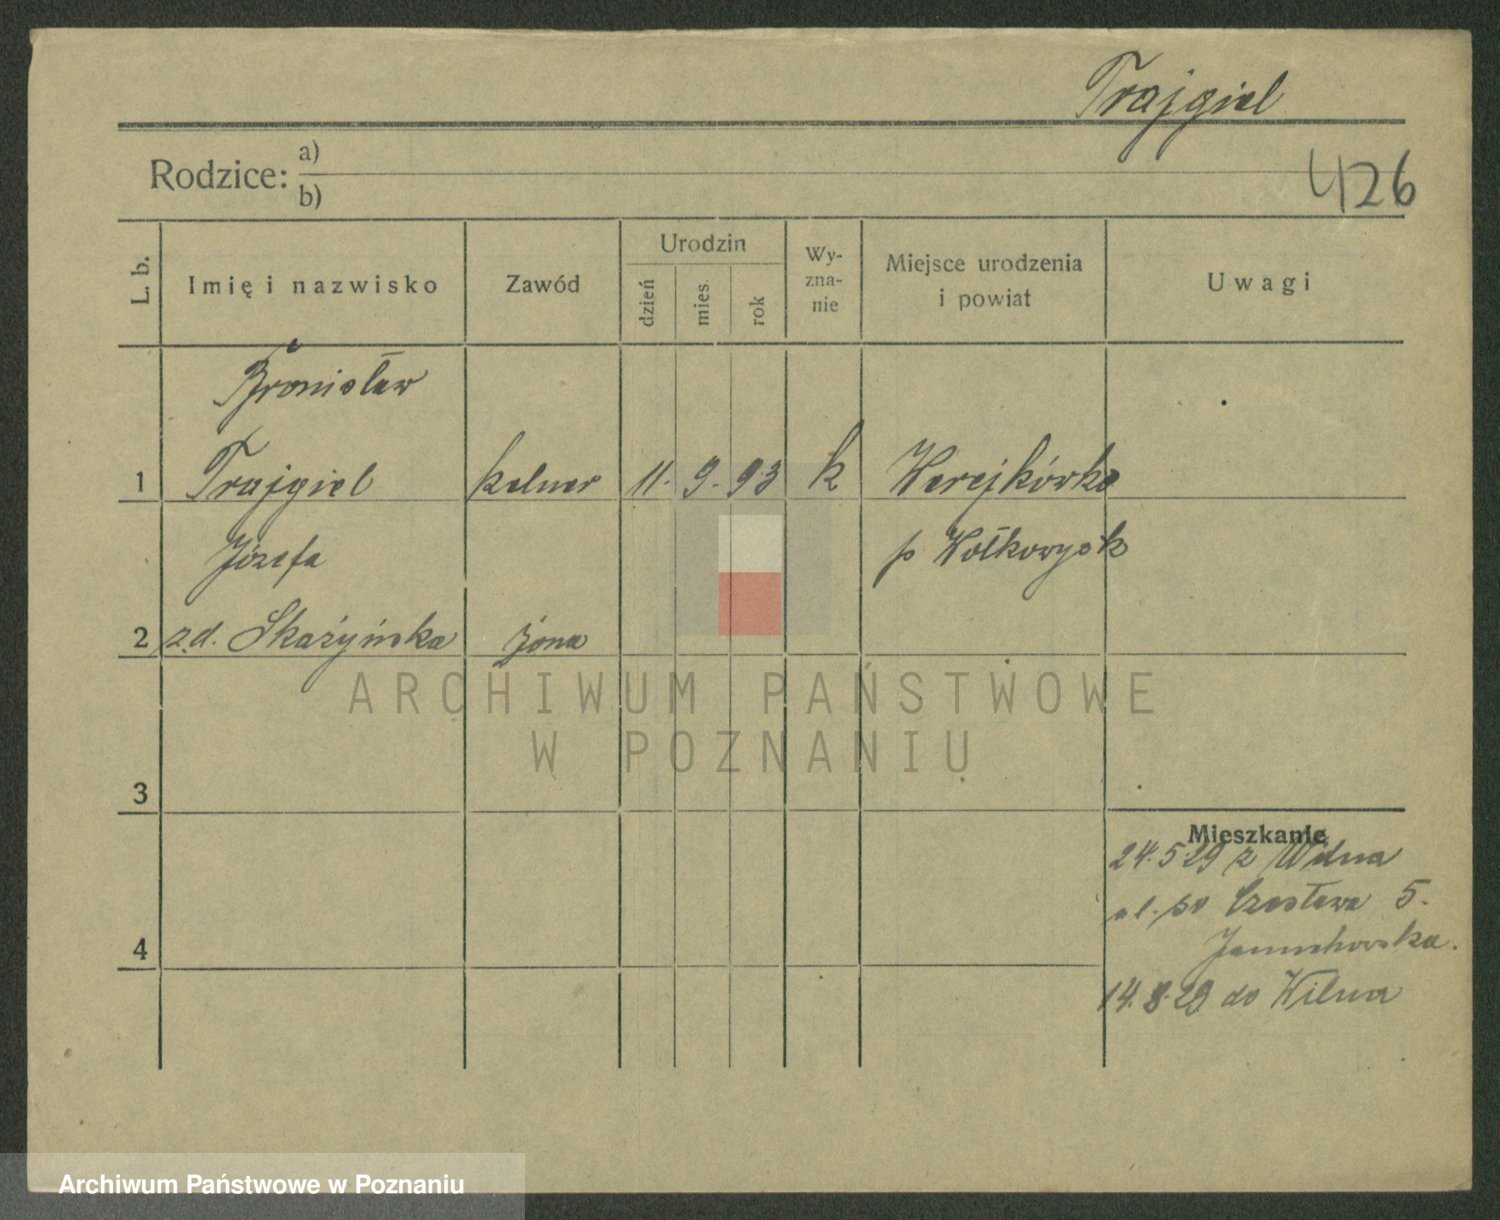 Trajgiel
Rodzice: a)
b)
426
L. b.
Imię i nazwisko
Zawód
Urodzin
dzień
mies
rok
Wy-
zna-
nie
Miejsce urodzenia
i powiat
Uwagi
Bronisław
1 Trajgiel kelner 11. 9. 93 k Werejkówka
Józefa p Wołkowysk
2 zd. Skażyńska żona
ARCHIWUM PAŃSTWOWE
W POZNANIU
3
Mieszkanie
24.5.29 z Wilna
ul. św Czesława 5.
4
14.8.29 do Wilna
Archiwum Państwowe w Poznaniu